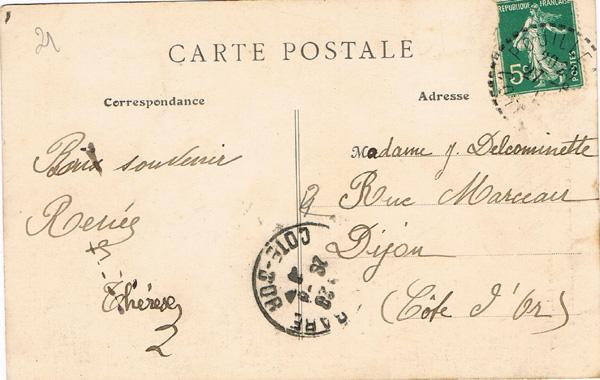 21
CARTE POSTALE
RÉPUBLIQUE FRANÇAISE
5c
POSTES
Correspondance
Adresse
Bon souvenir
Renée
et
Thérèse
Madame J. Delcominette
2 Rue Marceau
Dijon
(Côte d'Or)
GARE
COTE-D'OR